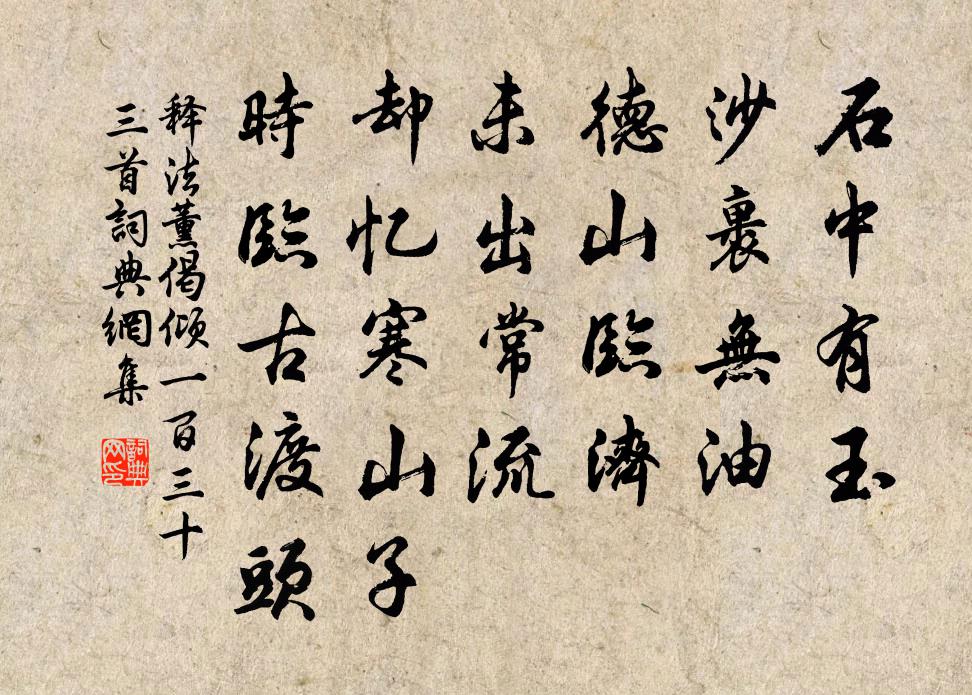 石中有玉
沙裏無油
德山臨濟
未出常流
却忆寒山子
時臨古渡頭
释法薰偈倾一百三十
三首詞典網集
詞典网印